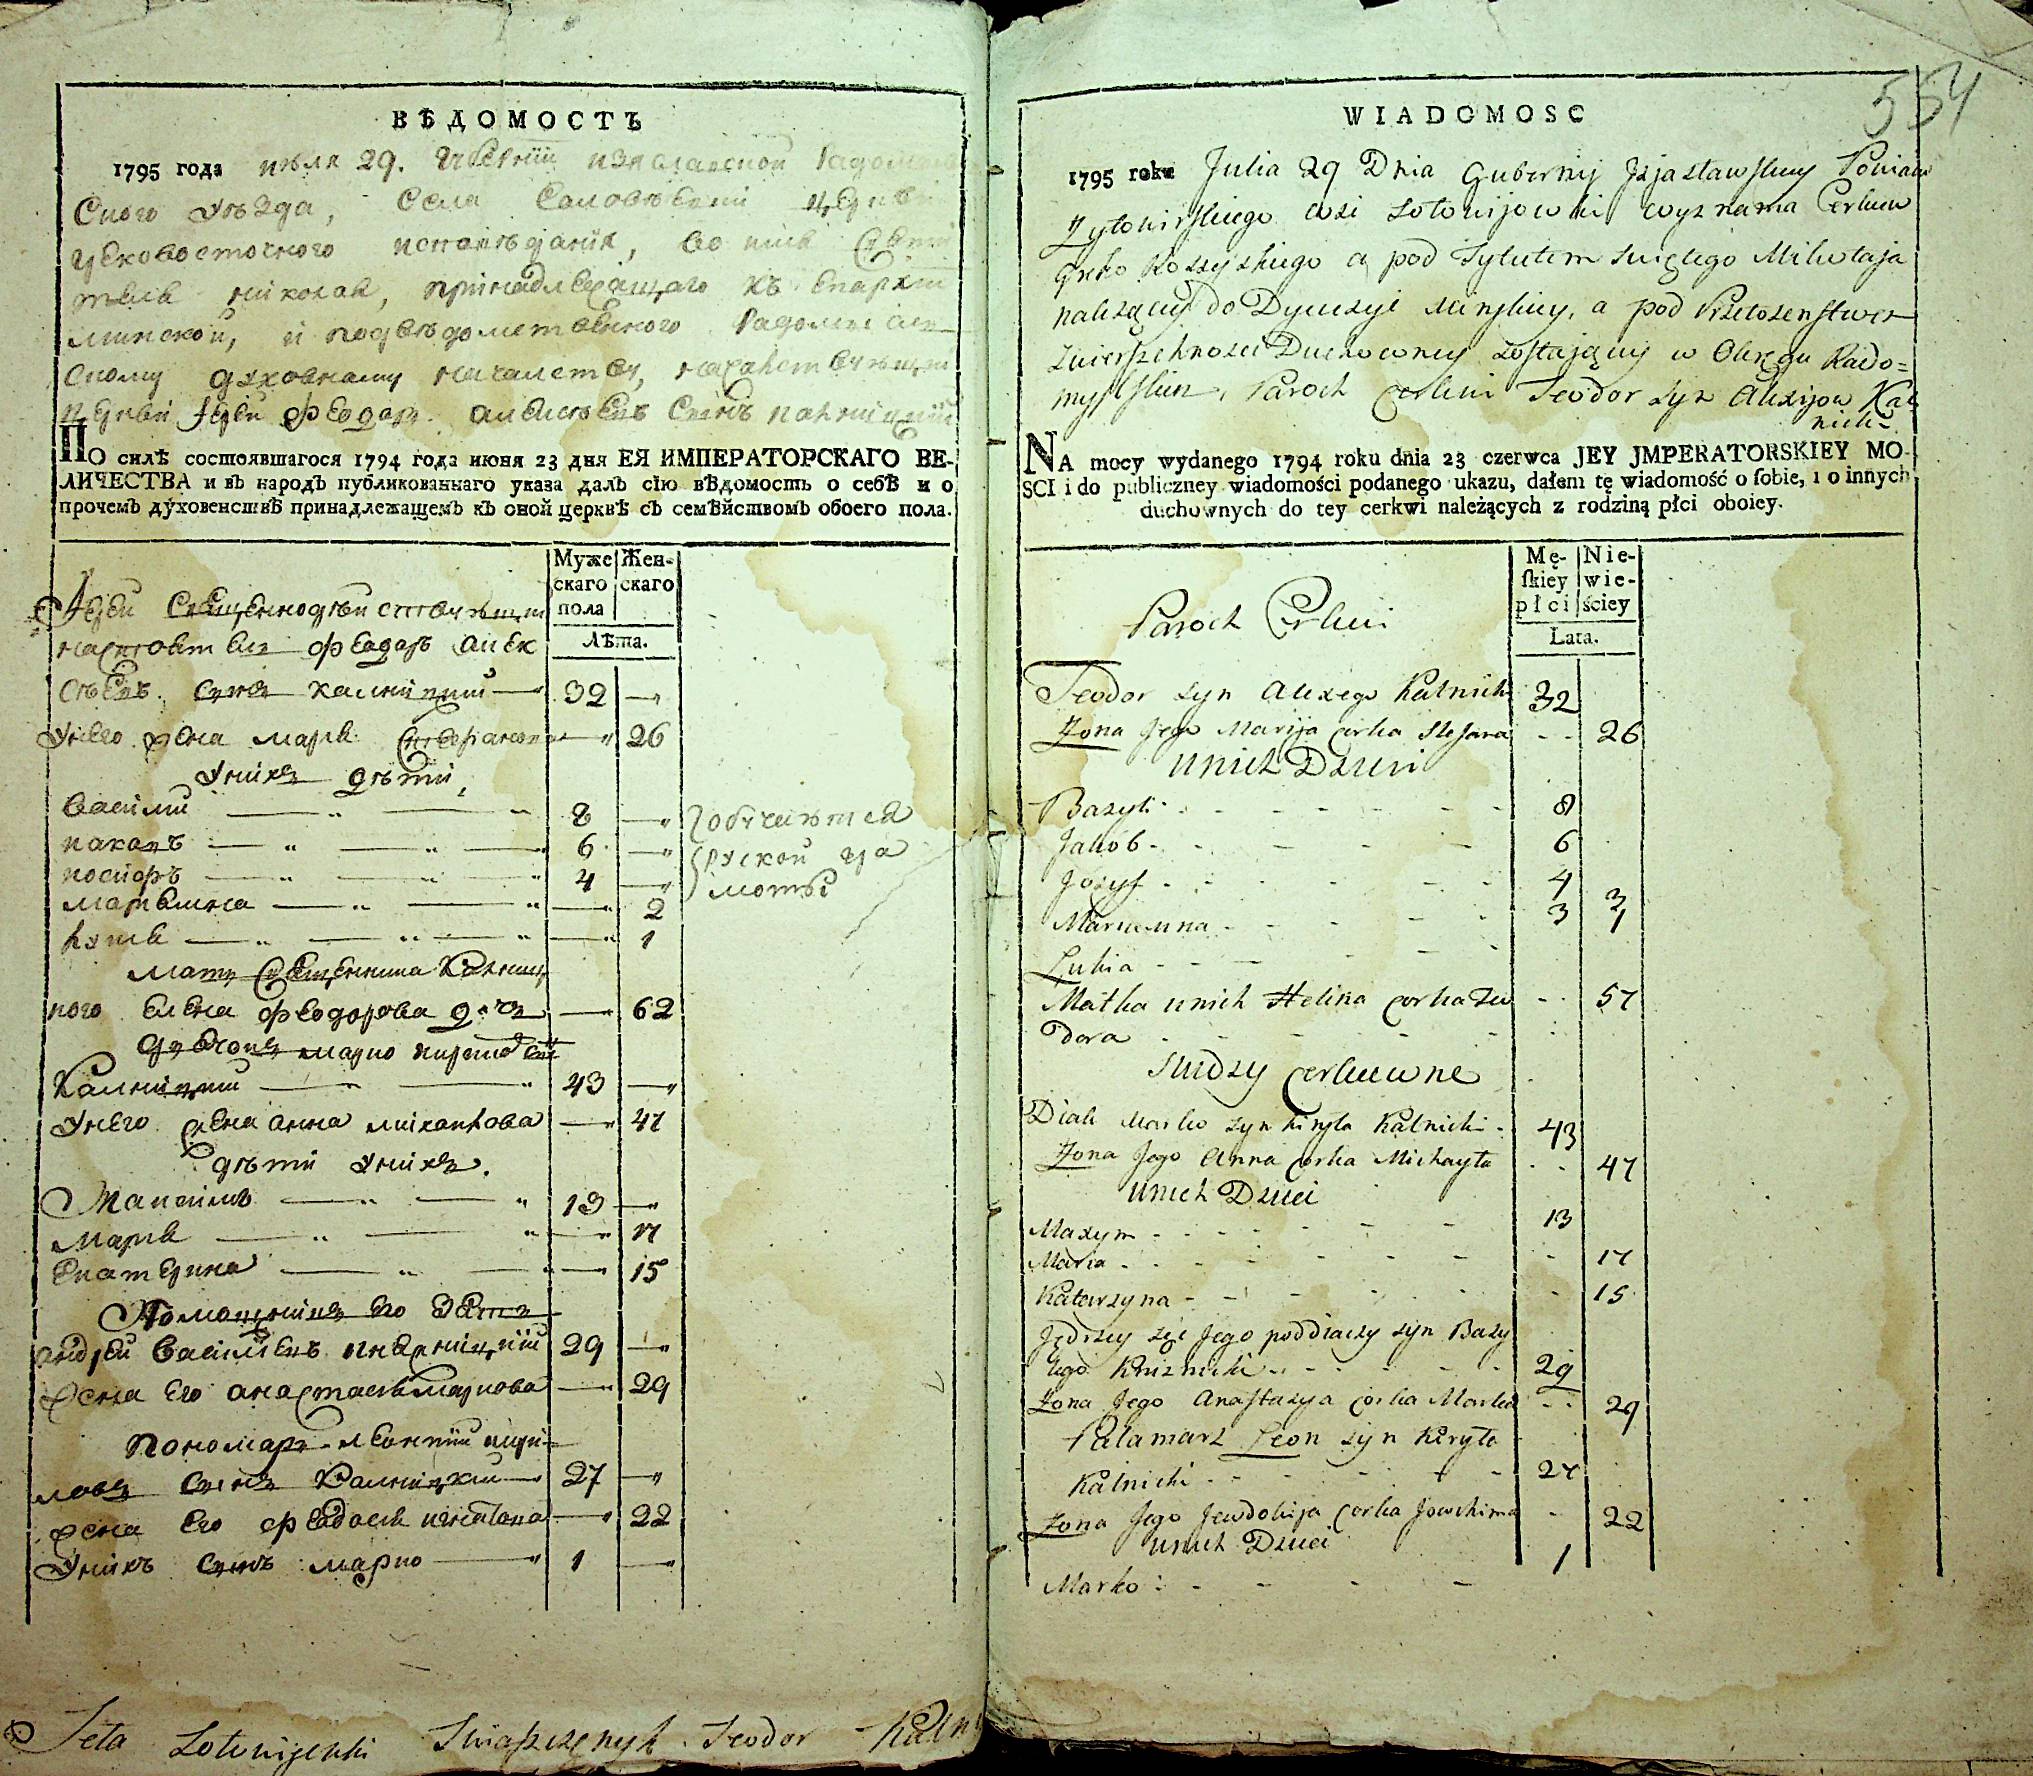 ВѢДОМОСТЪ
1795 года июля 29. Губернии изяславской Радомысл
ского уезда, Села Соловѣевки церкви
грековосточного исповѣданія, во имя святи
теля николая, принадлежащаго къ Епархіи
минской, и подвѣдомственного Радомысль
скому духовному началству,
церкви Іерей феодоръ Алексѣевъ Сынъ калницкій
ПО силѣ состоявшагося 1794 года июня 23 дня ЕЯ ИМПЕРАТОРСКАГО ВЕ-
ЛИЧЕСТВА и въ народъ публикованнаго указа далъ сію вѣдомость о себѣ и о
прочемъ духовенствѣ принадлежащемъ къ оной церквѣ съ семѣйствомъ обоего пола.
Муже скаго пола Жен- скаго
Лѣта.
Іерей Священнодѣйствующи
настоятель феодоръ Алек
сѣевъ сынъ калницкий 32 —
Унего жена мария Стефанова — 26
Унихъ дѣти,
Василий 8 —
иаковъ 6 —
иосифъ 4 —
обучаются
руской гра
моты
мариянна — 2
лукия — 1
мать священника Калниц
кого Елена феодорова дочь — 62
дьячокъ марко кирилов
Калницкий 43 —
Унего жена анна михайлова — 47
дѣти Унихъ.
Максимъ 13 —
Мария — 17
Екатерина — 15
Помощникъ его зять
андрей васильевъ 29 —
жена его анастасия маркова — 29
Пономарь леонтий кири-
ловъ сынъ Калницкий 27 —
жена его феодосия — 22
Унихъ сынъ марко 1 —
Teta Sotowijewki Swiaszczenyk Teodor Kaln
554
WIADOMOSC
1795 roku Julia 29 Dnia Gubernij Jzjasławskiey Powiatu
Zytomirskiego wsi Sołowijowki wyznania Cerkiew
Greko Rossyskiego a pod Tytułem Swiętego Mikołaja
nalezącey do Dyecezyi Minskiey, a pod Przełozenstwem
Zwierzchnosci Duchowney zostającey w Okręgu Rado=
myslskim, Paroch Cerkwi Teodor syn Alexijow Kal
nicki
NA mocy wydanego 1794 roku dnia 23 czerwca JEY JMPERATORSKIEY MO-
SCI i do publiczney wiadomości podanego ukazu, dałem tę wiadomość o sobie, i o innych
duchownych do tey cerkwi należących z rodziną płci oboiey.
Mę- skiey płci Nie- wie- ściey
Lata.
Paroch Cerkwi
Teodor syn Alexego Kalnicki 32
Żona Jego Marija corka Stefana - - 26
unich Dzieci
Bazyli 8
Jakób 6
Jozyf 4
Marianna 3 3
1
Łukia
Matka unich Helena corka Teo - 57
dora
Słudzy Cerkiewne
Diak Marko syn Kiryla Kalnicki 43
Żona Jego Anna corka Michayła - - 47
unich Dzieci
Maxym 13
Maria - 17
Katarzyna - 15
Jędrzey zięć Jego poddiaczy syn Bazy
lego 29
Żona Jego Anastazya corka Marka - - 29
Palamarz Leon syn Kiryła
Kalnicki 27
Żona Jego Jewdokija corka Jowchima - 22
unich Dzieci
Marko 1